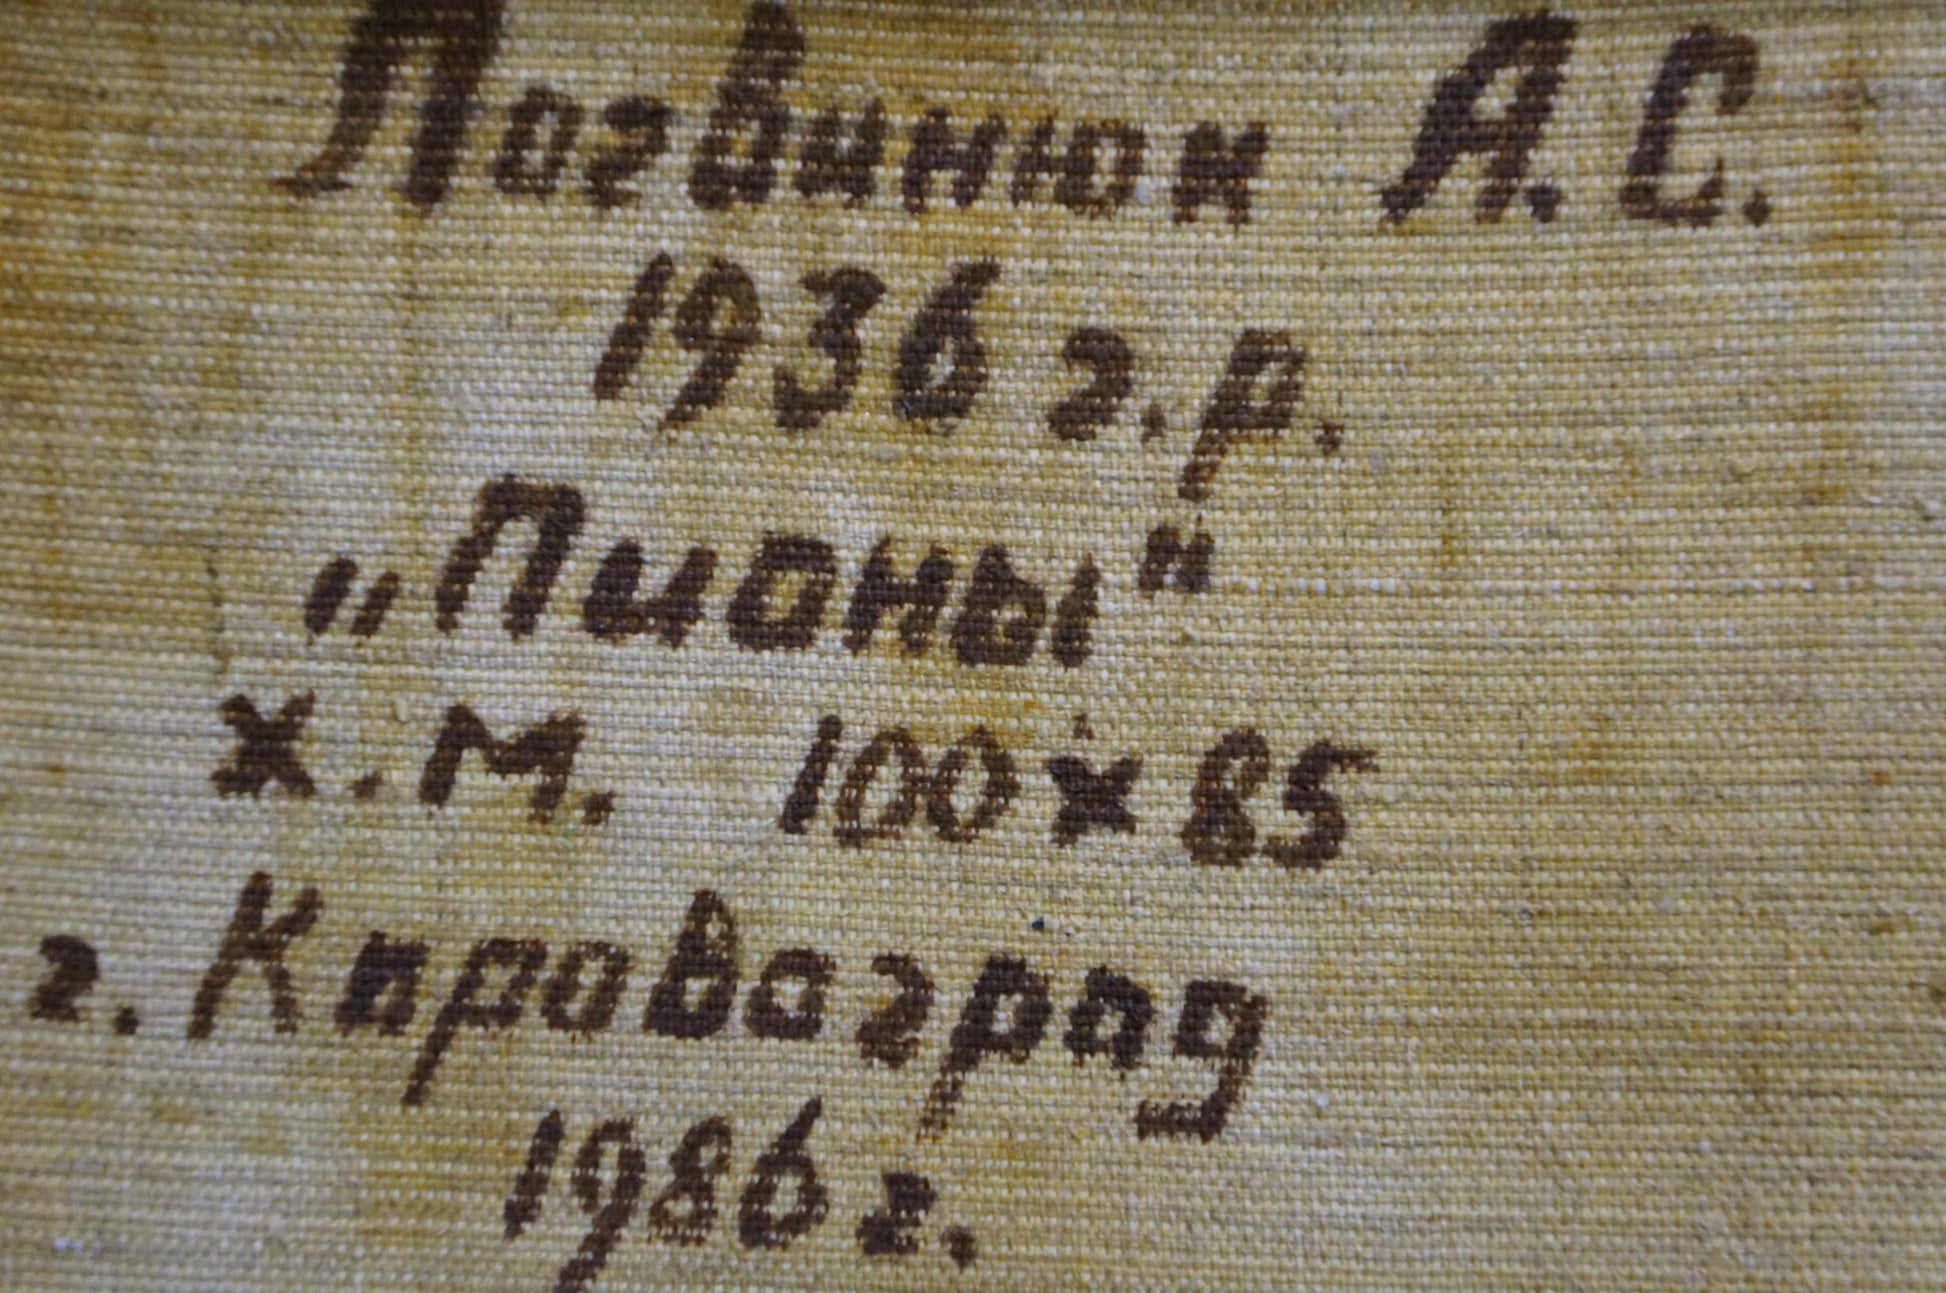 Логвинюк А.С.
1936 г.р.
„Пионы"
х.м. 100х85
г. Кировоград
1986 г.